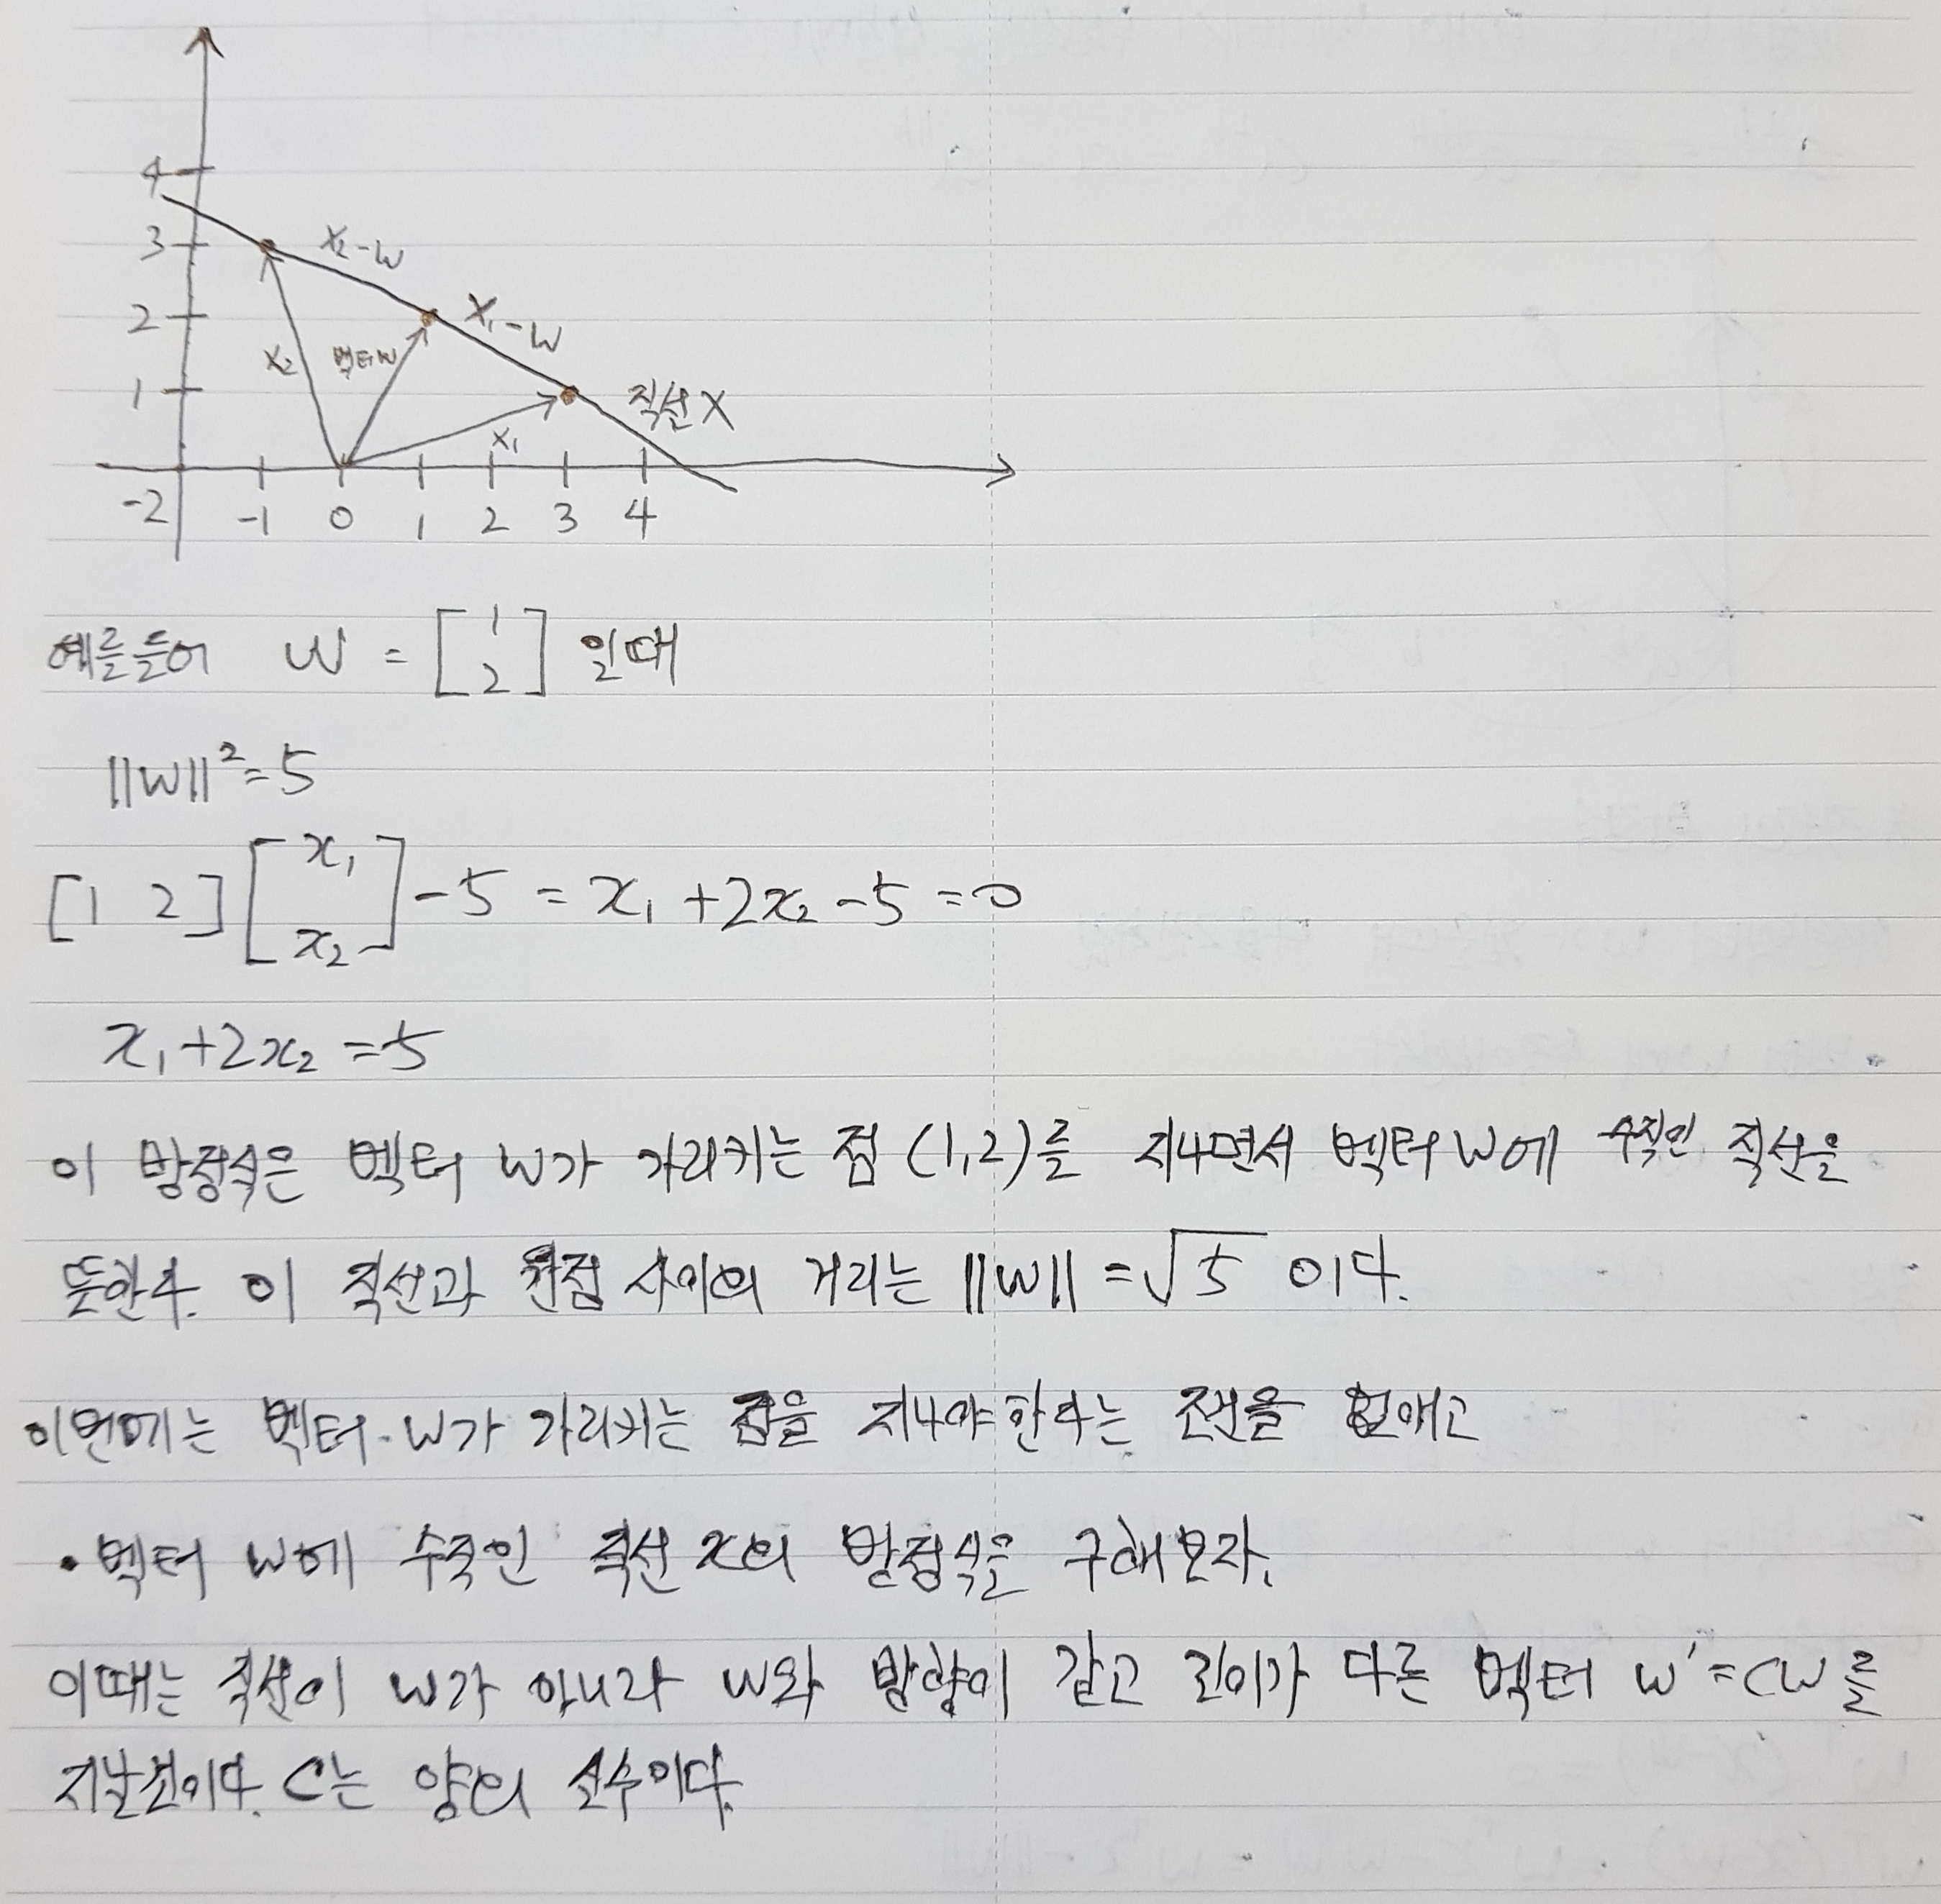 4
3
x₂-w
2
x₁-w
x₂
벡터w
1
직선 X
x₁
-2 -1 0 1 2 3 4
예를들어 w = [1 2] 일때
||w||²=5
[1 2][x₁ x₂]-5 = x₁+2x₂-5=0
x₁+2x₂=5
이 방정식은 벡터 w가 가리키는 점 (1,2)를 지나면서 벡터 w에 수직인 직선을
뜻한다. 이 직선과 원점 사이의 거리는 ||w||=√5 이다.
이번에는 벡터 w가 가리키는 점을 지나야한다는 조건을 없애고
• 벡터 w에 수직인 직선 x의 방정식을 구해보자.
이때는 직선이 w가 아니라 w와 방향이 같고 길이가 다른 벡터 w'=cw를
지날것이다. c는 양의 실수이다.